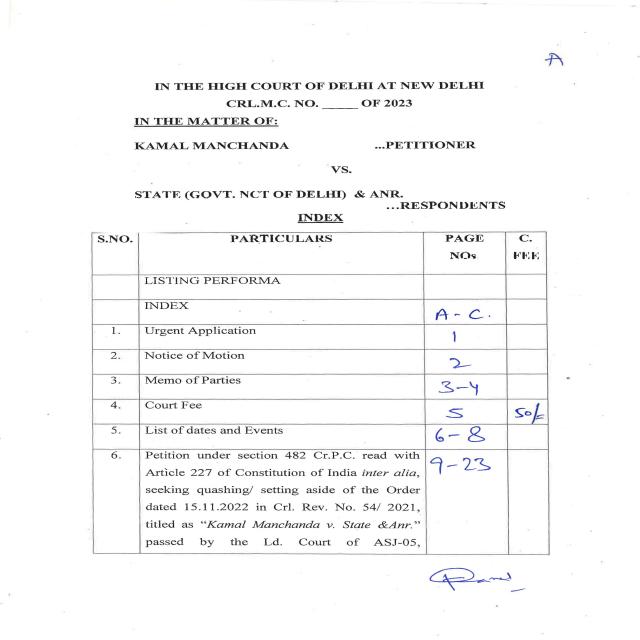 A
IN THE HIGH COURT OF DELHI AT NEW DELHI
CRL.M.C. NO. _____ OF 2023
IN THE MATTER OF:
KAMAL MANCHANDA ...PETITIONER
VS.
STATE (GOVT. NCT OF DELHI) & ANR.
...RESPONDENTS
INDEX
S.NO. PARTICULARS PAGE NOs C. FEE
LISTING PERFORMA
INDEX A - C.
1. Urgent Application 1
2. Notice of Motion 2
3. Memo of Parties 3-4
4. Court Fee 5 50/=
5. List of dates and Events 6-8
6. Petition under section 482 Cr.P.C. read with 9-23
Article 227 of Constitution of India inter alia,
seeking quashing/ setting aside of the Order
dated 15.11.2022 in Crl. Rev. No. 54/ 2021,
titled as “Kamal Manchanda v. State &Anr.”
passed by the Ld. Court of ASJ-05,